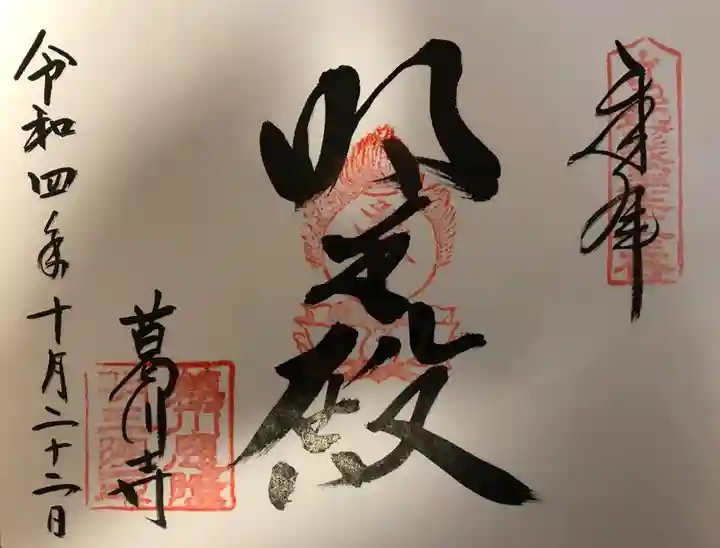 奉拝
明王殿
葛川寺
令和四年十月二十二日